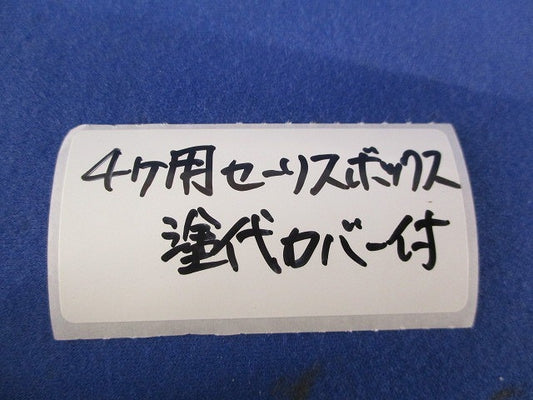 4ケ用セーリスボックス
塗代カバー付